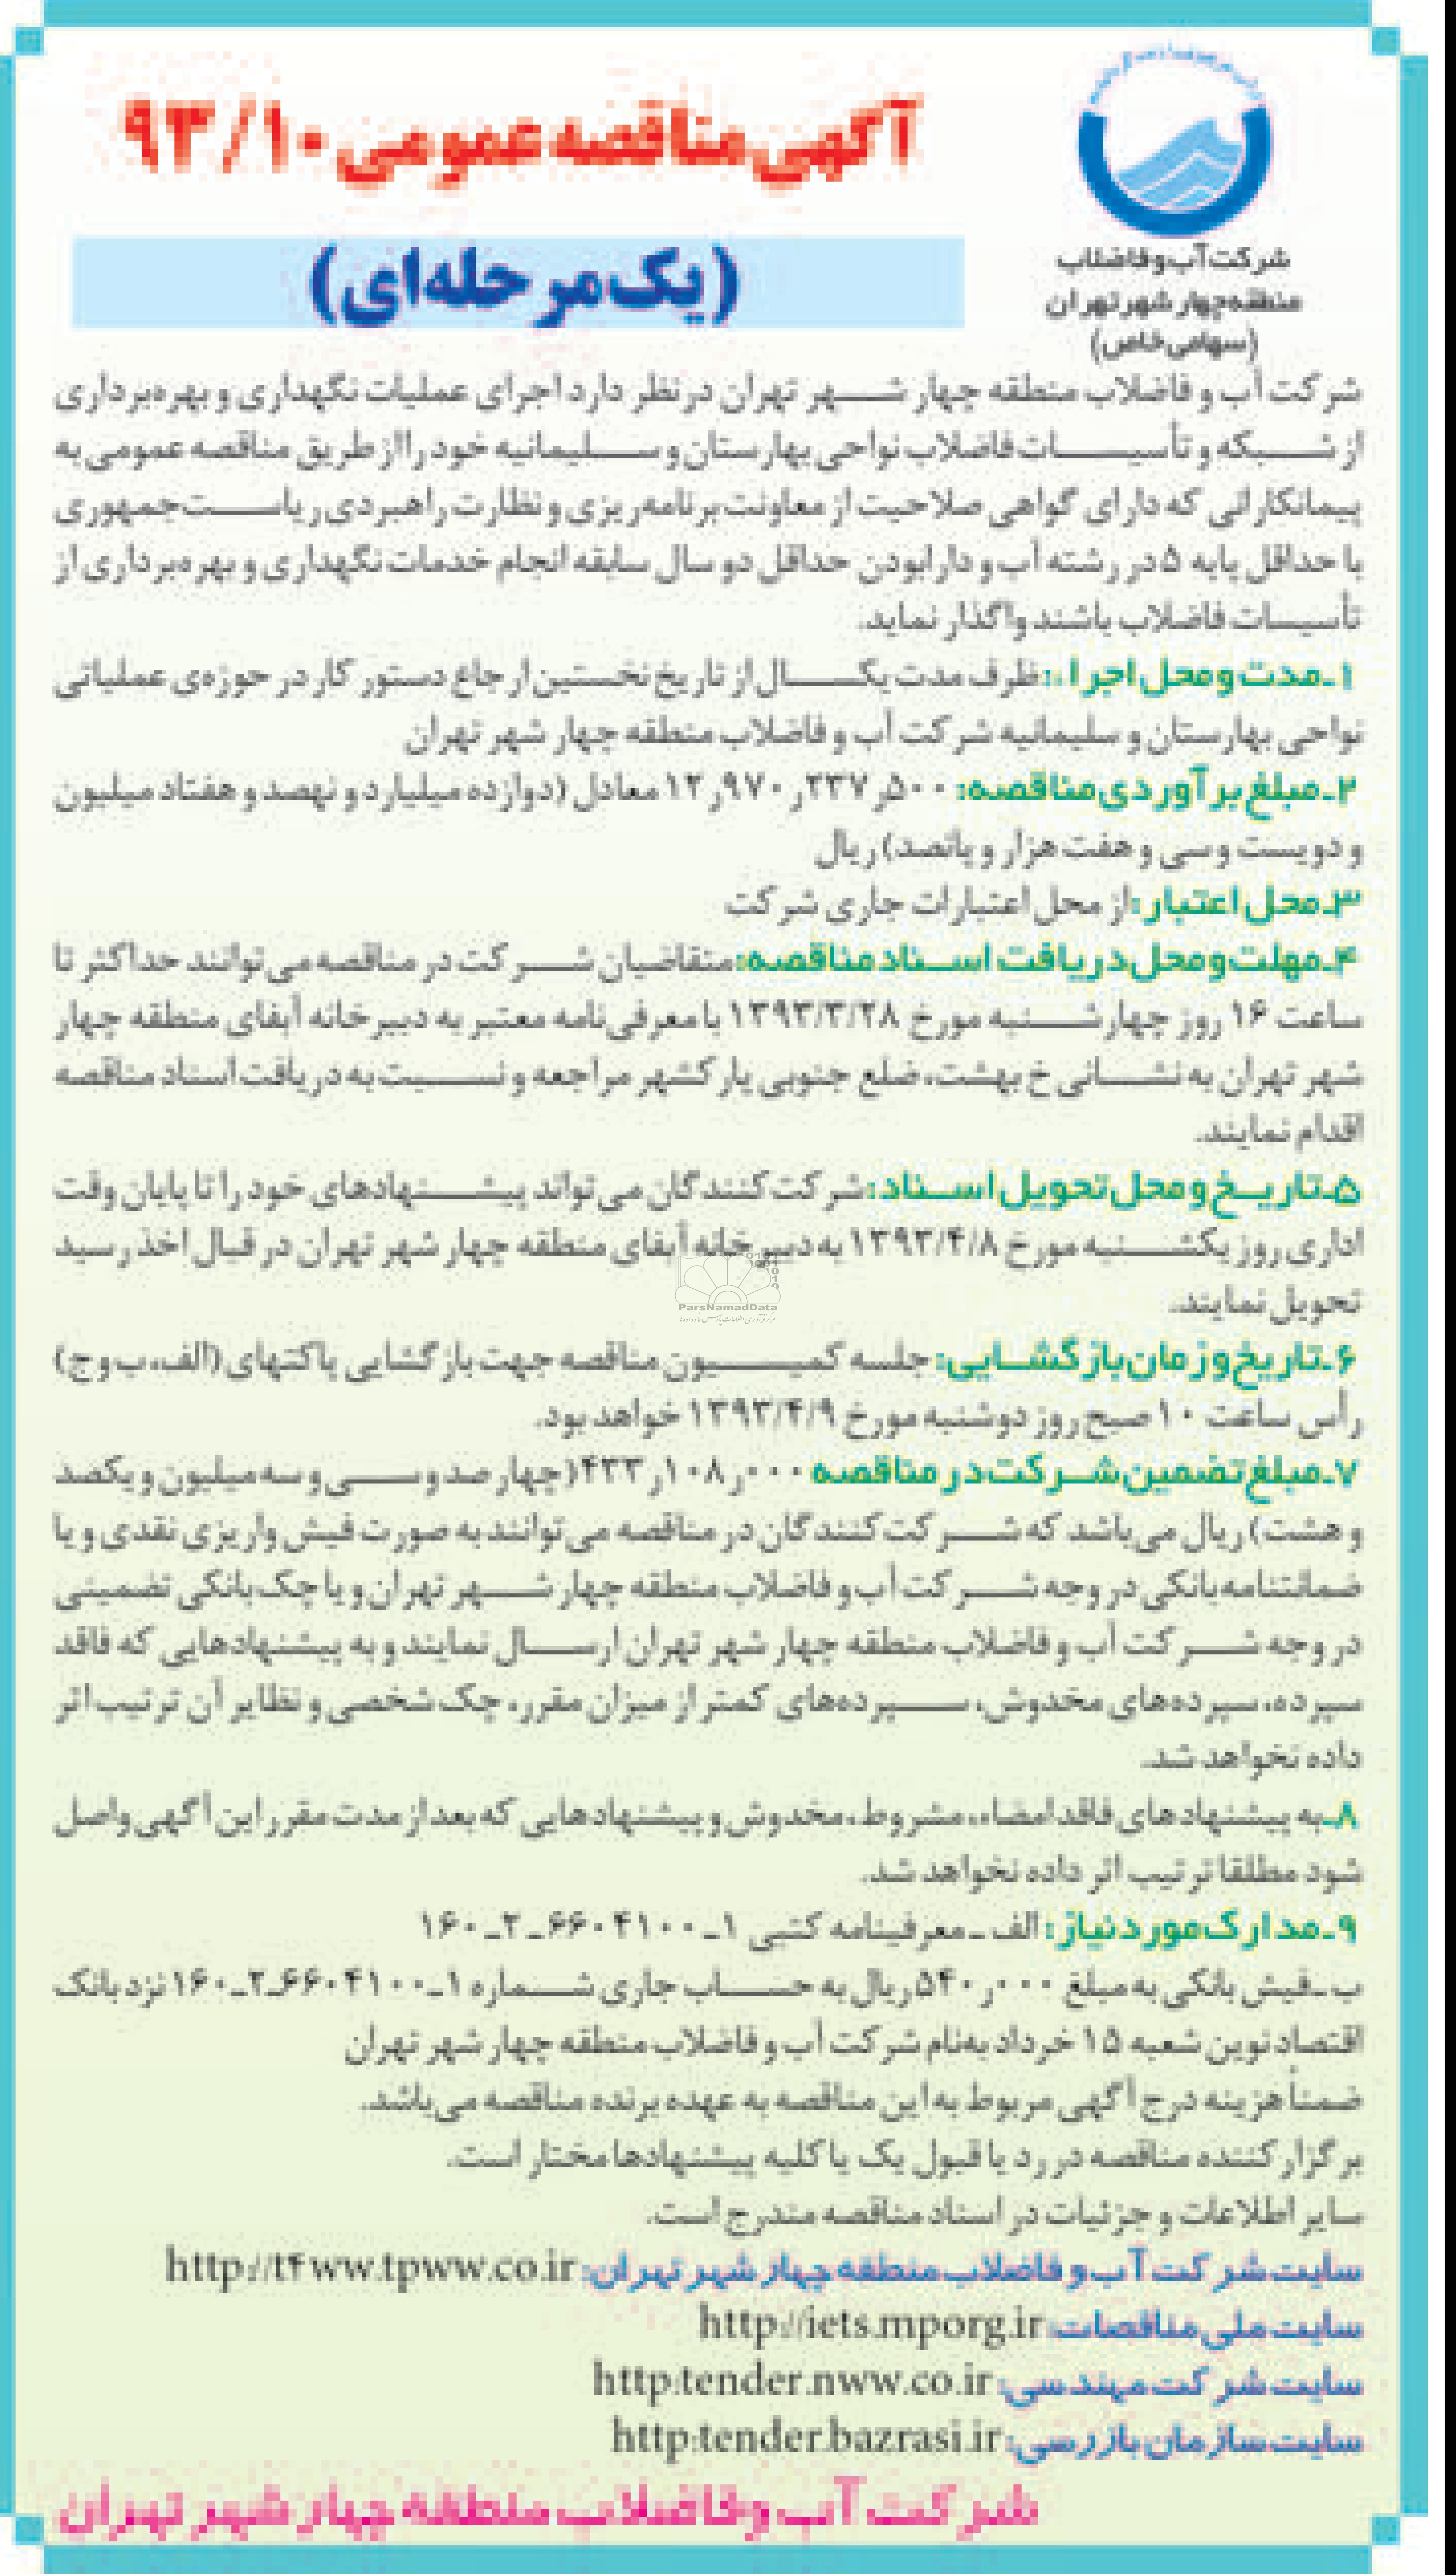 آگهی مناقصه عمومی ۹۳/۱۰
(یک مرحله‌ای)
شرکت آب و فاضلاب
منطقه چهار شهر تهران
(سهامی خاص)
شرکت آب و فاضلاب منطقه چهار شهر تهران درنظر دارد اجرای عملیات نگهداری و بهره‌برداری
از شبکه و تأسیسات فاضلاب نواحی بهارستان و سلیمانیه خود را از طریق مناقصه عمومی به
پیمانکارانی که دارای گواهی صلاحیت از معاونت برنامه‌ریزی و نظارت راهبردی ریاست‌جمهوری
با حداقل پایه ۵ در رشته آب و دارابودن حداقل دو سال سابقه انجام خدمات نگهداری و بهره‌برداری از
تأسیسات فاضلاب باشند واگذار نماید.
۱ـ مدت و محل اجراء: ظرف مدت یکسال از تاریخ نخستین ارجاع دستور کار در حوزه‌ی عملیاتی
نواحی بهارستان و سلیمانیه شرکت آب و فاضلاب منطقه چهار شهر تهران
۲ـ مبلغ برآوردی مناقصه: ۱۲ر۹۷۰ر۲۳۷ر۵۰۰ معادل (دوازده میلیارد و نهصد و هفتاد میلیون
و دویست و سی و هفت هزار و پانصد) ریال
۳ـ محل اعتبار: از محل اعتبارات جاری شرکت
۴ـ مهلت و محل دریافت اسناد مناقصه: متقاضیان شرکت در مناقصه می‌توانند حداکثر تا
ساعت ۱۶ روز چهارشنبه مورخ ۱۳۹۳/۳/۲۸ با معرفی‌نامه معتبر به دبیرخانه آبفای منطقه چهار
شهر تهران به نشانی خ بهشت، ضلع جنوبی پارکشهر مراجعه و نسبت به دریافت اسناد مناقصه
اقدام نمایند.
۵ـ تاریخ و محل تحویل اسناد: شرکت کنندگان می‌تواند پیشنهادهای خود را تا پایان وقت
اداری روز یکشنبه مورخ ۱۳۹۳/۴/۸ به دبیرخانه آبفای منطقه چهار شهر تهران در قبال اخذ رسید
تحویل نمایند.
ParsNamadData
۶ـ تاریخ و زمان بازگشایی: جلسه کمیسیون مناقصه جهت بازگشایی پاکتهای (الف، ب و ج)
رأس ساعت ۱۰ صبح روز دوشنبه مورخ ۱۳۹۳/۴/۹ خواهد بود.
۷ـ مبلغ تضمین شرکت در مناقصه ۴۳۳ر۱۰۸ر۰۰۰ (چهارصد و سی و سه میلیون و یکصد
و هشت) ریال می‌باشد که شرکت کنندگان در مناقصه می‌توانند به صورت فیش واریزی نقدی و یا
ضمانتنامه بانکی در وجه شرکت آب و فاضلاب منطقه چهار شهر تهران و یا چک بانکی تضمینی
در وجه شرکت آب و فاضلاب منطقه چهار شهر تهران ارسال نمایند و به پیشنهادهایی که فاقد
سپرده، سپرده‌های مخدوش، سپرده‌های کمتر از میزان مقرر، چک شخصی و نظایر آن ترتیب اثر
داده نخواهد شد.
۸ـ به پیشنهادهای فاقد امضاء، مشروط، مخدوش و پیشنهادهایی که بعد از مدت مقرر این آگهی واصل
شود مطلقا ترتیب اثر داده نخواهد شد.
۹ـ مدارک مورد نیاز: الف ـ معرفینامه کتبی ۱ـ۶۶۰۴۱۰۰ـ۲ـ۱۶۰
ب ـ فیش بانکی به مبلغ ۵۴۰ر۰۰۰ ریال به حساب جاری شماره ۱ـ۶۶۰۴۱۰۰ـ۲ـ۱۶۰ نزد بانک
اقتصاد نوین شعبه ۱۵ خرداد به‌نام شرکت آب و فاضلاب منطقه چهار شهر تهران
ضمناً هزینه درج آگهی مربوط به این مناقصه به عهده برنده مناقصه می‌باشد.
برگزار کننده مناقصه در رد یا قبول یک یا کلیه پیشنهادها مختار است.
سایر اطلاعات و جزئیات در اسناد مناقصه مندرج است.
سایت شرکت آب و فاضلاب منطقه چهار شهر تهران: http://t۴ww.tpww.co.ir
سایت ملی مناقصات: http://iets.mporg.ir
سایت شرکت مهندسی: http:tender.nww.co.ir
سایت سازمان بازرسی: http:tender.bazrasi.ir
شرکت آب و فاضلاب منطقه چهار شهر تهران